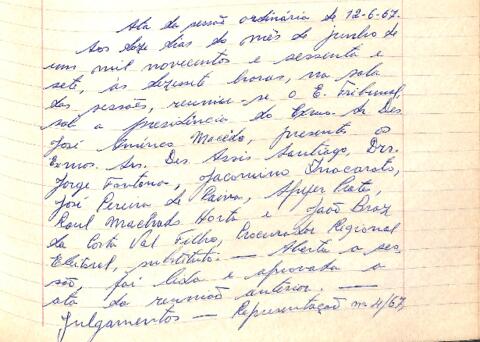 Ata da sessão ordinária de 12-6-67.
Aos doze dias do mês de junho de
um mil novecentos e sessenta e
sete, às dezessete horas, na sala
das sessões, reuniu-se o E. Tribunal,
sob a presidência do Exmo. Sr. Des.
José Américo Macêdo, presentes os
Exmos. Srs. Des. Assis Santiago, Drs.
Jorge Fontana, Jacomino Inacarato,
José Pereira de Paiva, Prates,
Raul Machado Horta e João Braz
da Costa Val Filho, Procurador Regional
Eleitoral, substituto. — Aberta a ses-
são, foi lida e aprovada a
ata da reunião anterior. —
Julgamentos — Representação nº 4/67,